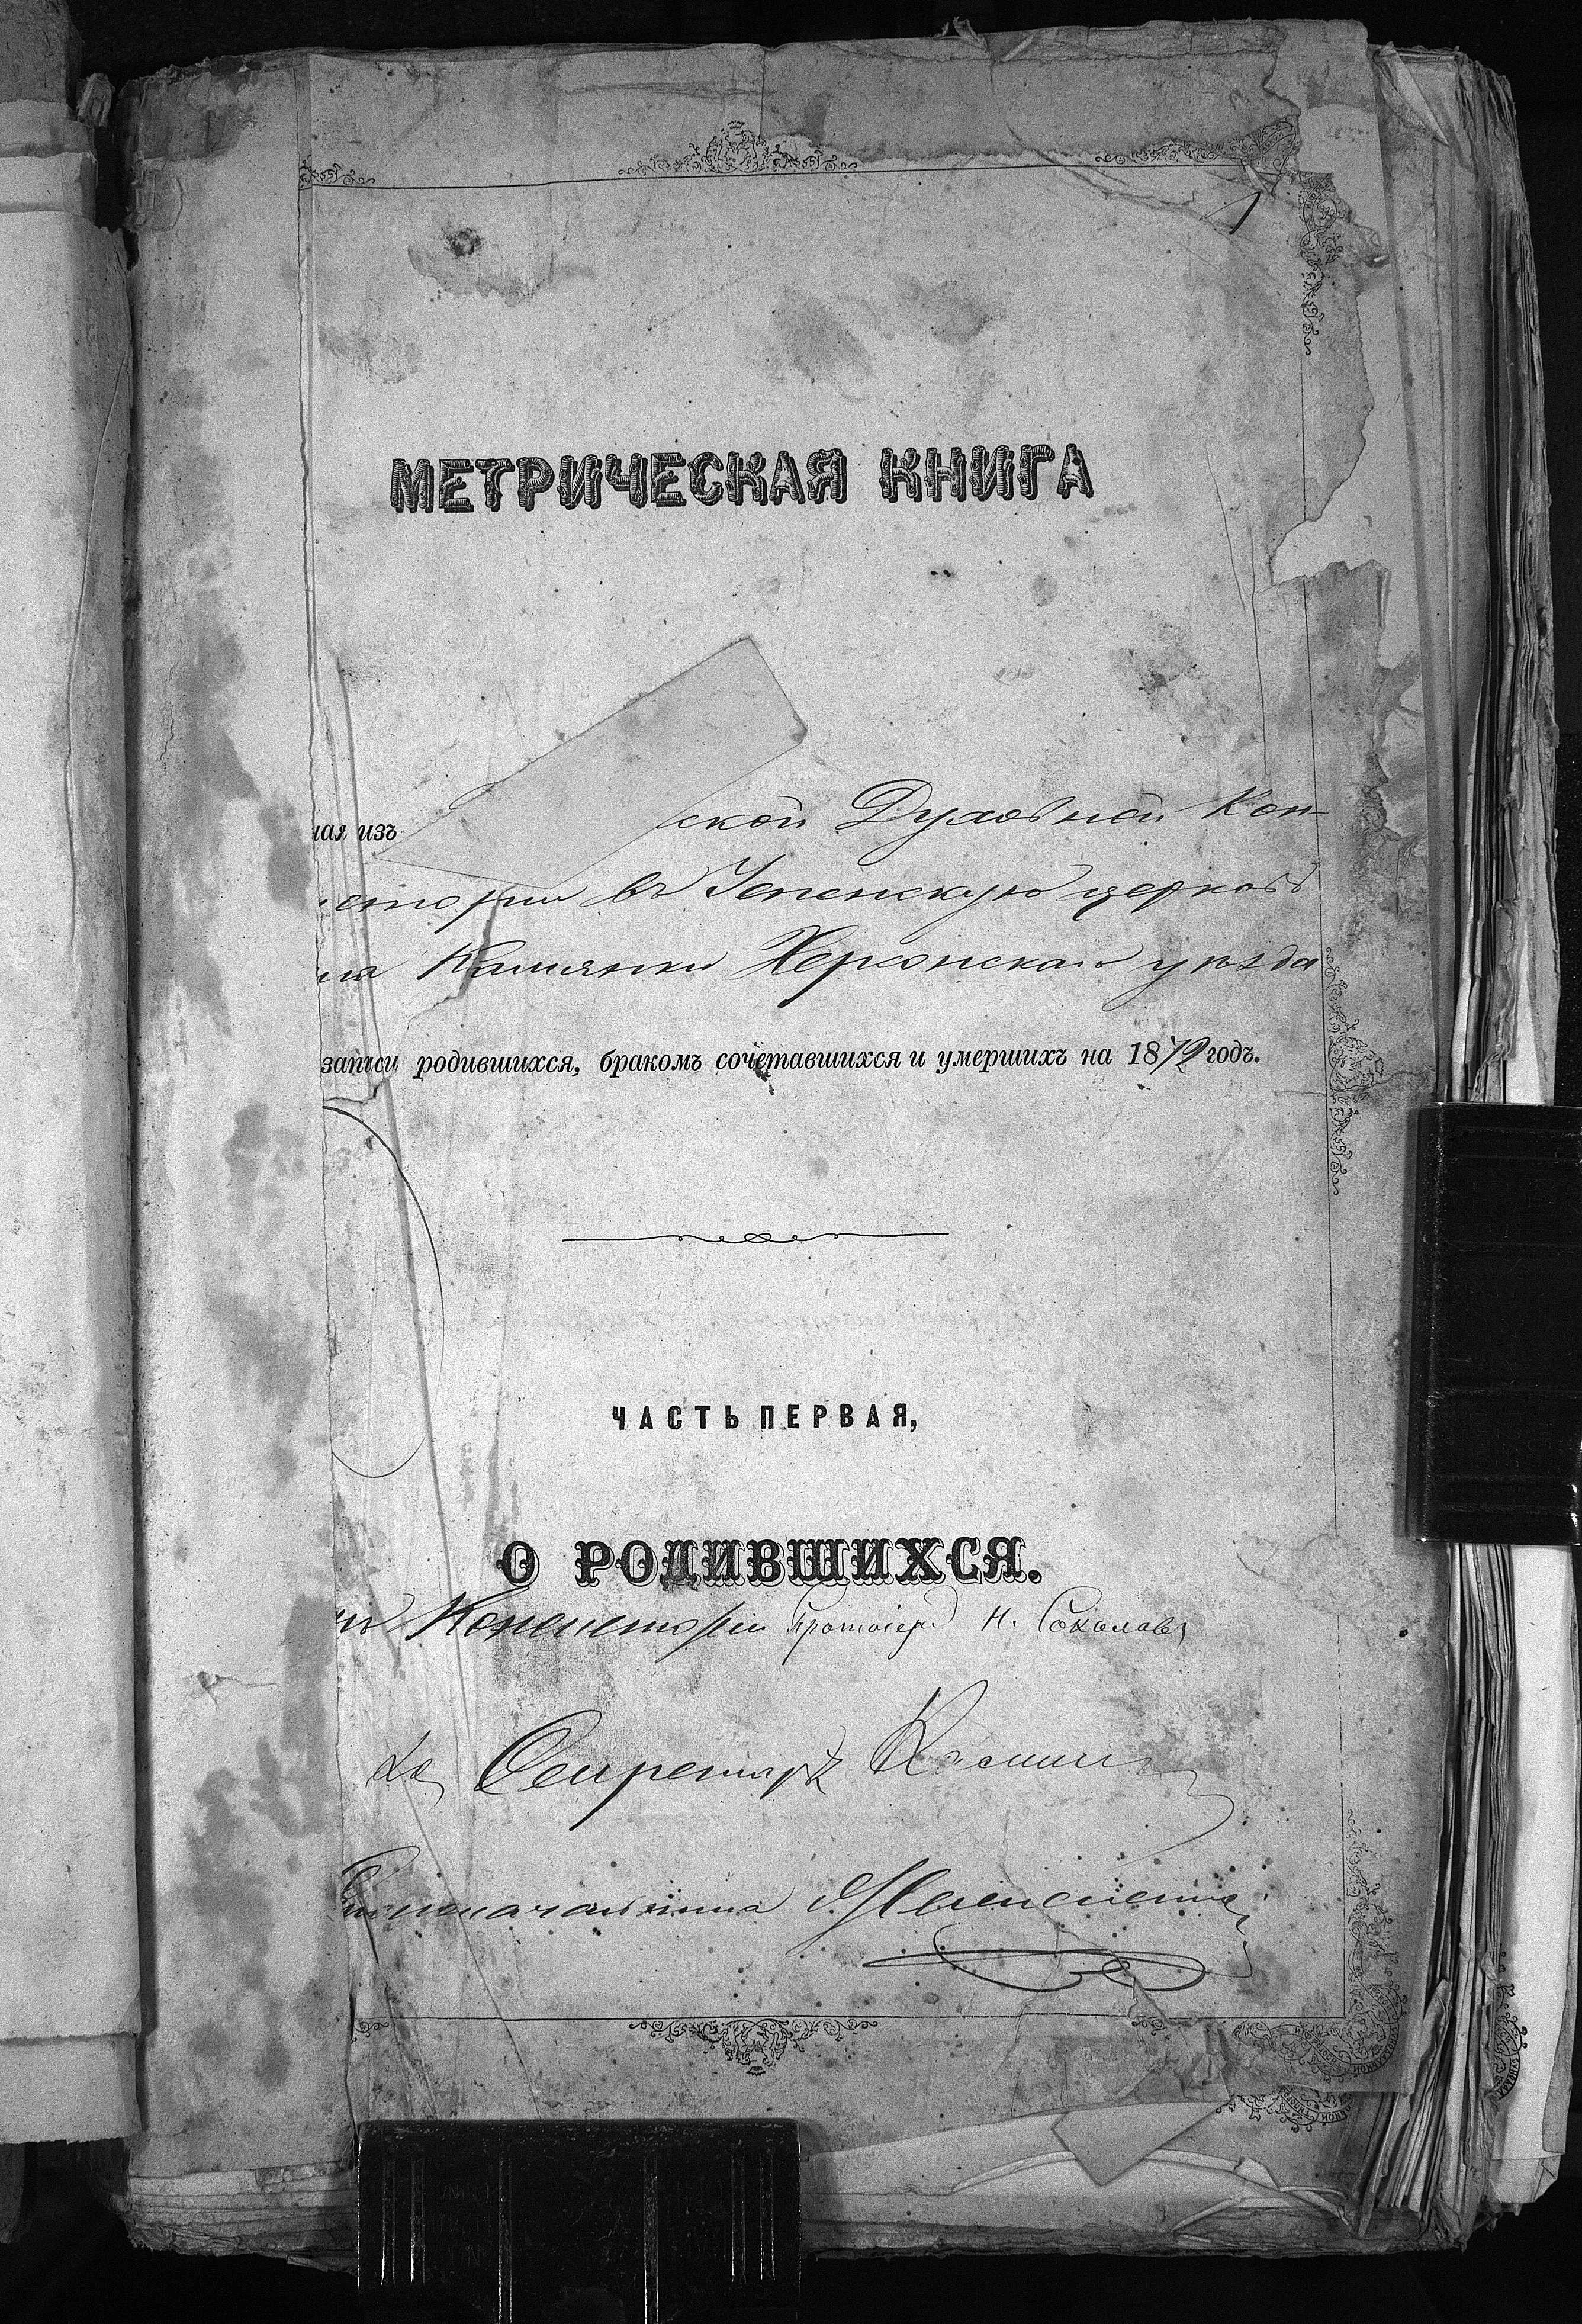 1
МЕТРИЧЕСКАЯ КНИГА
ная изъ ской Духовной Кон-
систоріи въ Успенскую церковь
Камянки Херсонскаго уѣзда
записи родившихся, бракомъ сочетавшихся и умершихъ на 1872 годъ.
ЧАСТЬ ПЕРВАЯ,
О РОДИВШИХСЯ.
Консисторіи Протоіерей Н. Соколовъ
Секретарь
Столоначальника